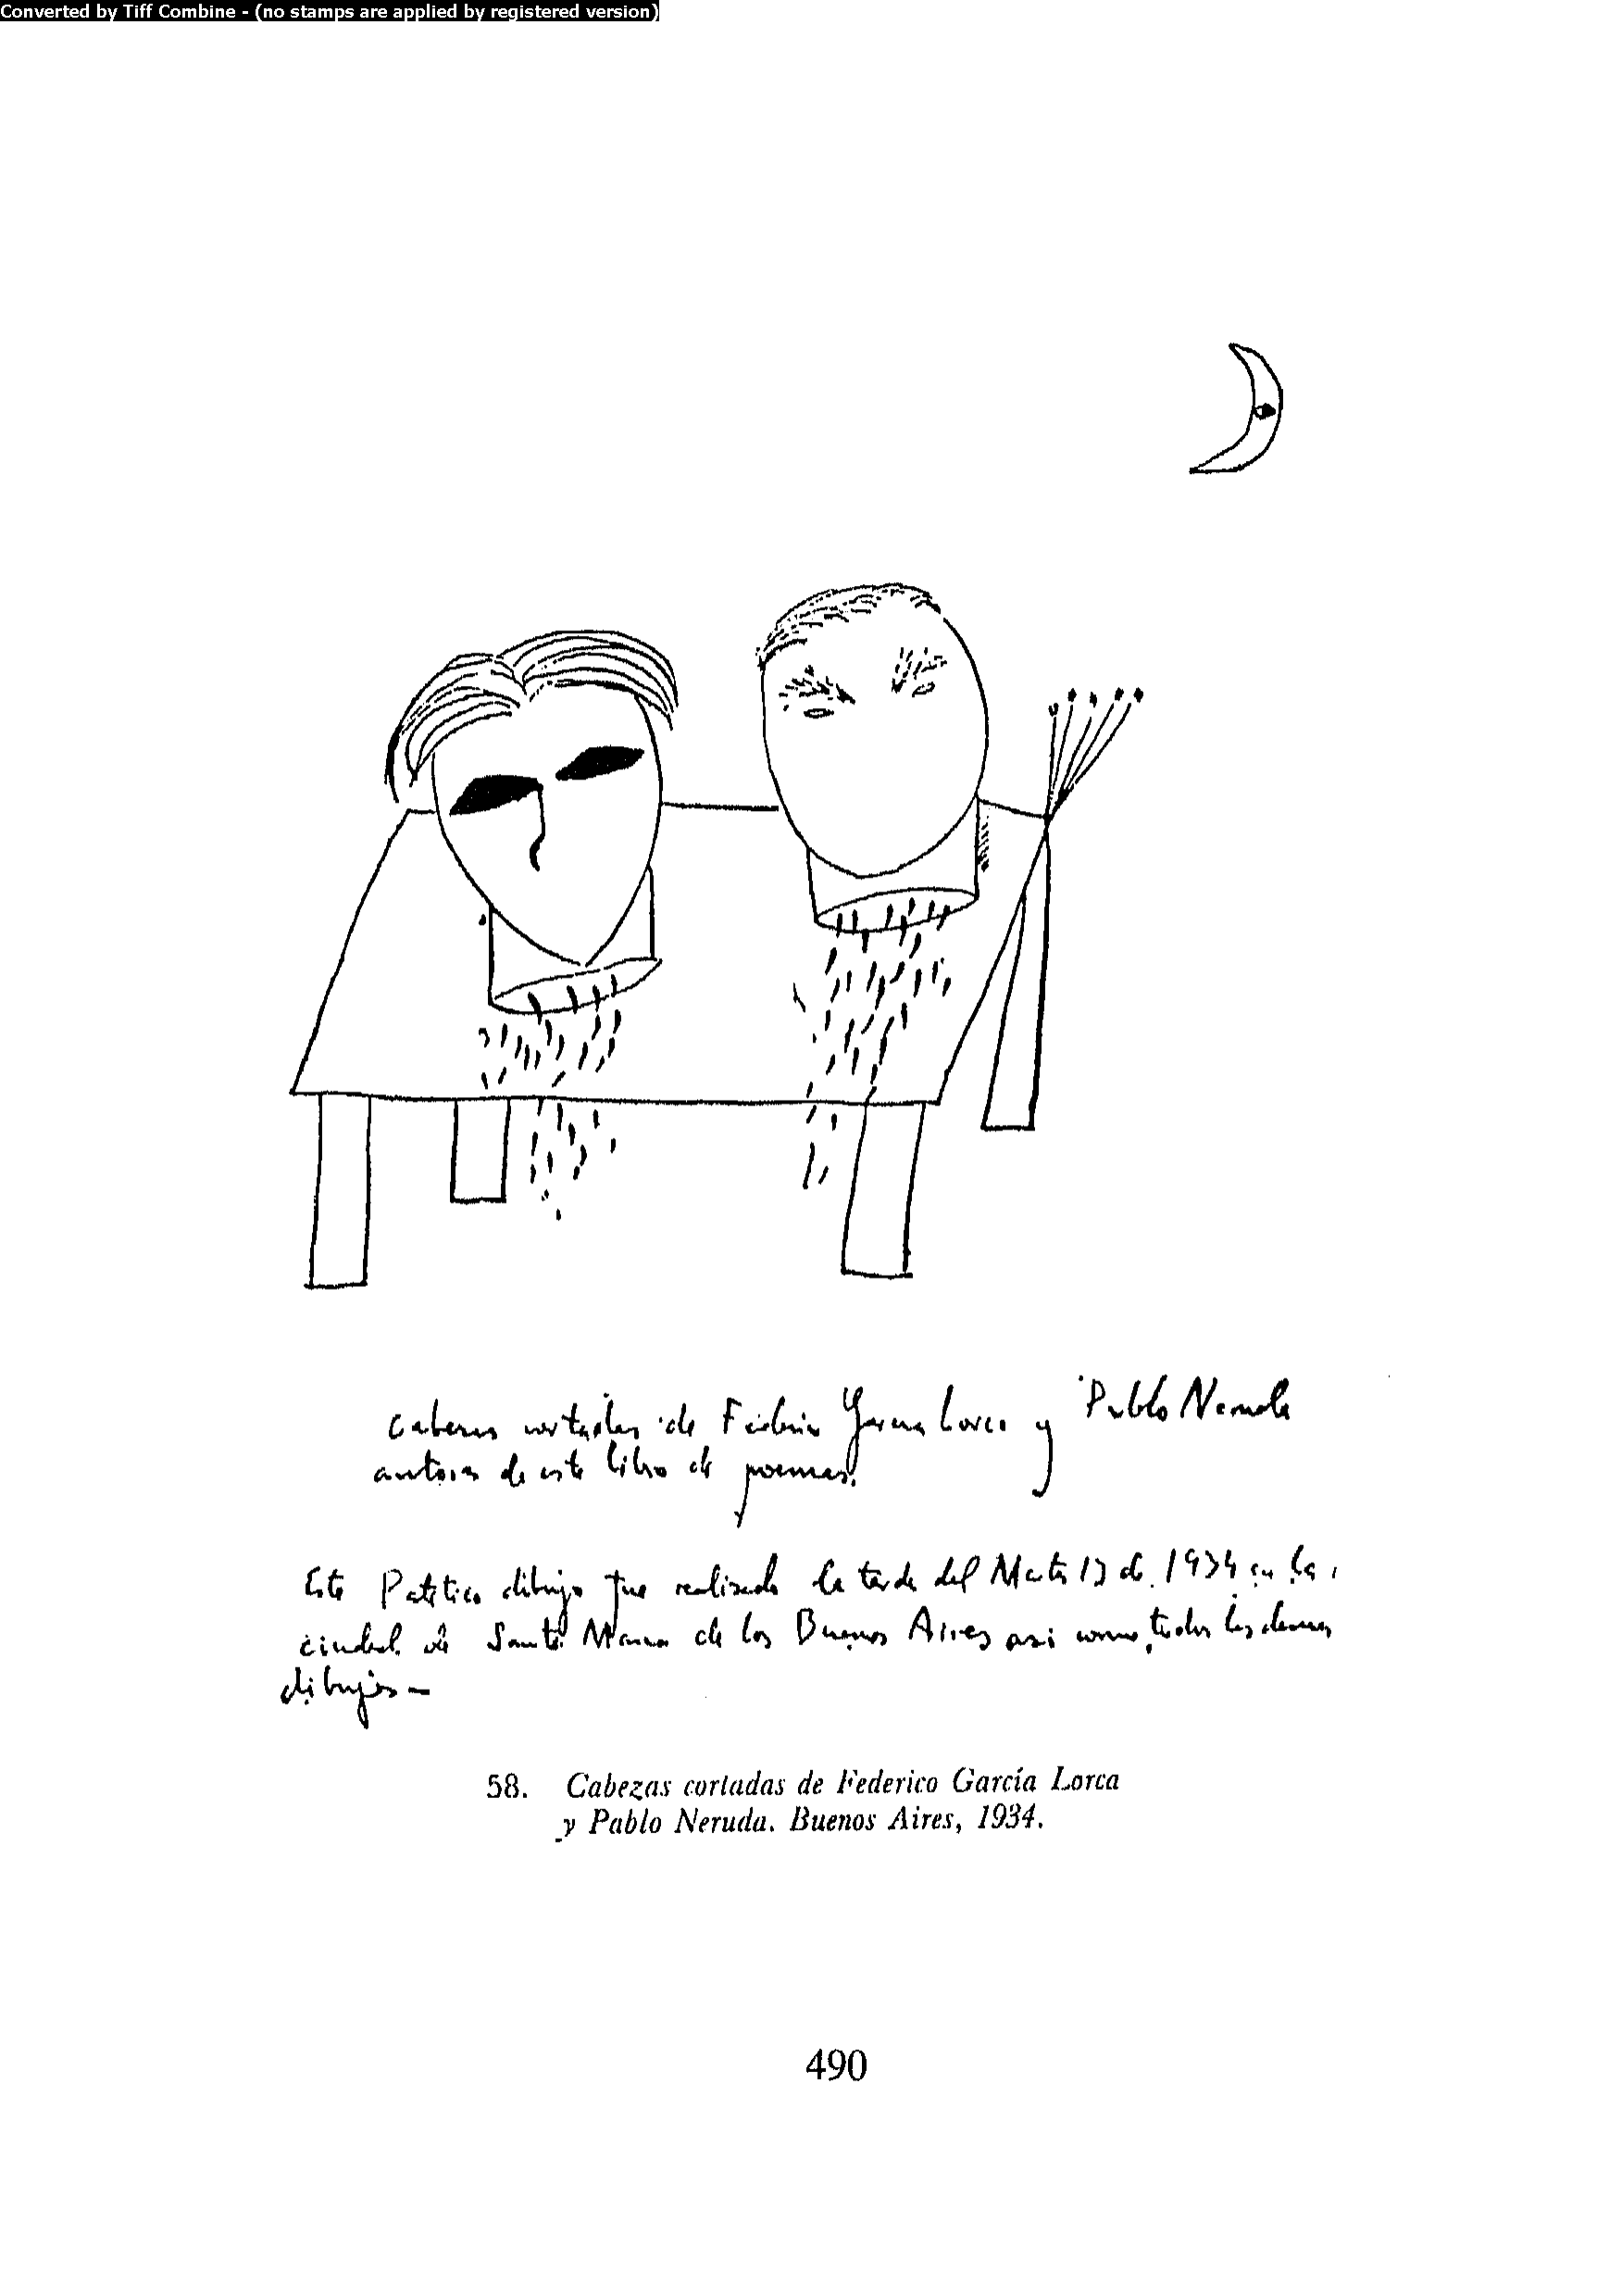 Converted by Tiff Combine - (no stamps are applied by registered version)
Cabezas cortadas de Federico García Lorca y Pablo Neruda
autores de este libro de poemas.
Este Patético dibujo fue realizado la tarde del Martes 13 de 1934 en la
ciudad de Santa Maria de los Buenos Aires asi como todos los demas
dibujos —
58. Cabezas cortadas de Federico García Lorca
y Pablo Neruda. Buenos Aires, 1934.
490